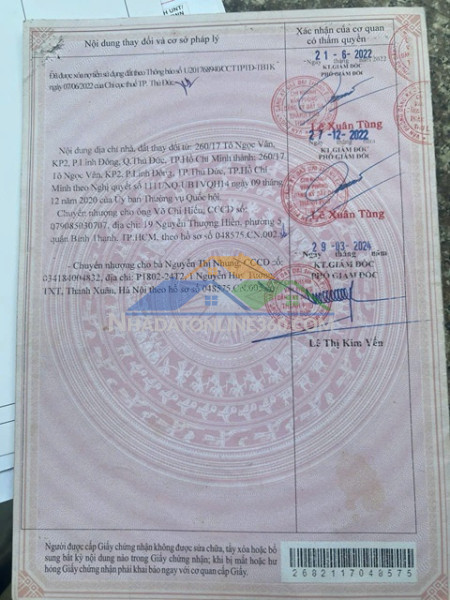 Nội dung thay đổi và cơ sở pháp lý
Xác nhận của cơ quan
có thẩm quyền
Đã được xóa nợ tiền sử dụng đất theo Thông báo số
ngày 07/06/2022 của Chi cục thuế TP. Thủ Đức
21-6-2022
KT.GIÁM ĐỐC
PHÓ GIÁM ĐỐC
Lê Xuân Tùng
Nội dung địa chỉ nhà, đất thay đổi từ: 260/17 Tô Ngọc Vân,
KP2, P.Linh Đông, Q.Thủ Đức, TP.Hồ Chí Minh thành: 260/17
Tô Ngọc Vân, KP2, P.Linh Đông, TP.Thủ Đức, TP.Hồ Chí
Minh theo Nghị quyết số 1111/NQ-UBTVQH14 ngày 09 tháng
12 năm 2020 của Ủy ban Thường vụ Quốc hội.
Chuyển nhượng cho ông Võ Chí Hiếu, CCCD số:
079085030707, địa chỉ: 19 Nguyễn Thượng Hiền, phường 5,
quận Bình Thạnh, TP.HCM, theo hồ sơ số 048575.CN.002
27-12-2022
Ngày tháng năm
KT.GIÁM ĐỐC
PHÓ GIÁM ĐỐC
Lê Xuân Tùng
Chuyển nhượng cho bà Nguyễn Thị Nhung CCCD số:
034184004832, địa chỉ: P1802-24T2, Nguyễn Huy Tưởng,
TXT, Thanh Xuân, Hà Nội theo hồ sơ số 048575.CN.003
29-03-2024
Ngày tháng năm
KT.GIÁM ĐỐC
PHÓ GIÁM ĐỐC
Lê Thị Kim Yến
NHADATONLINE360.COM
Người được cấp Giấy chứng nhận không được sửa chữa, tẩy xóa hoặc bổ
sung bất kỳ nội dung nào trong Giấy chứng nhận; khi bị mất hoặc hư
hỏng Giấy chứng nhận phải khai báo ngay với cơ quan cấp Giấy.
2682117048575